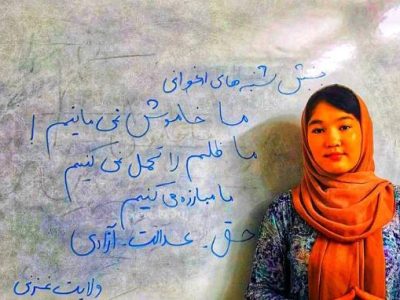 جنبش شنبه های ارغوانی
ما خاموش نمی مانیم !
ما ظلم را تحمل نمی کنیم
ما مبارزه می کنیم
حق - عدالت - آزادی
ولایت غزنی